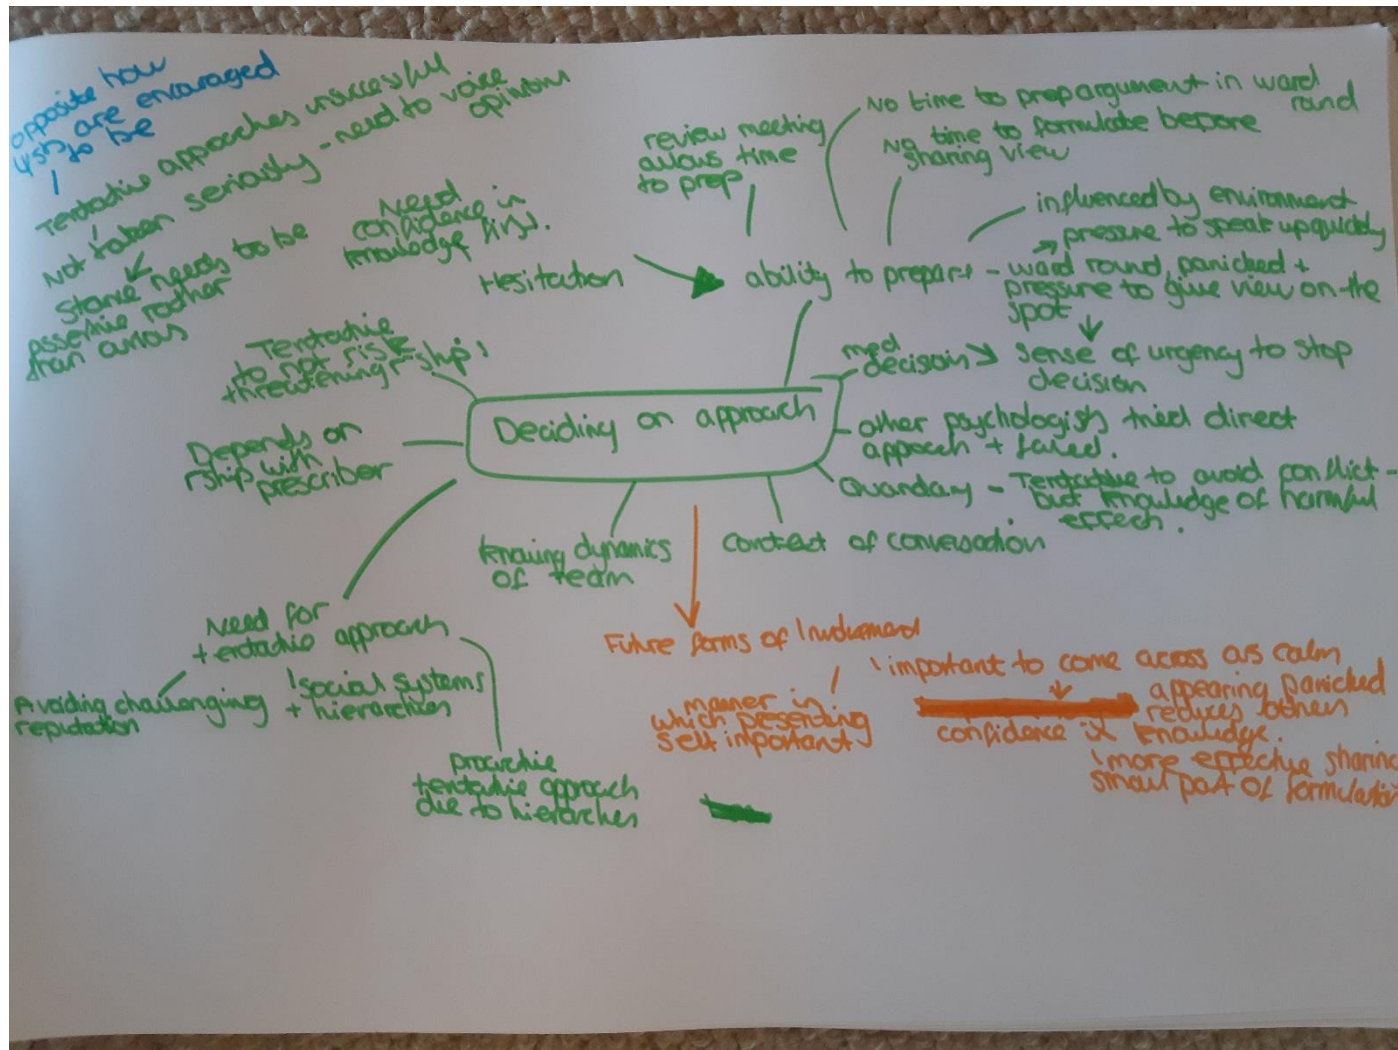 opposite how
are encouraged
to be
Tentative approaches unsuccessful
Not taken seriously - need to voice
opinion
Stance needs to be
assertive rather
than curious
Need
confidence in
knowledge first.
Hesitation
review meeting
allows time
to prep
No time to prep argument in ward
round
No time to formulate before
sharing view
influenced by environment
pressure to speak up quickly
ability to prepare - ward round, panicked +
pressure to give view on the
spot
med
decision
Sense of urgency to stop
decision
Tentative
to not risk
threatening r-ship
Deciding on approach
other psychologists tried direct
approach + failed.
Quandary - Tentative to avoid conflict -
but knowledge of harmful
effects.
Depends on
rship with
prescriber
knowing dynamics
of team
context of conversation
Need for
tentative approach
Avoiding challenging
reputation
social systems
+ hierarchies
tentative approach
due to hierarchies
Future forms of Involvement
manner in
which presenting
self important
important to come across as calm
appearing panicked
reduces others
confidence in knowledge.
more effective sharing
small part of formulation